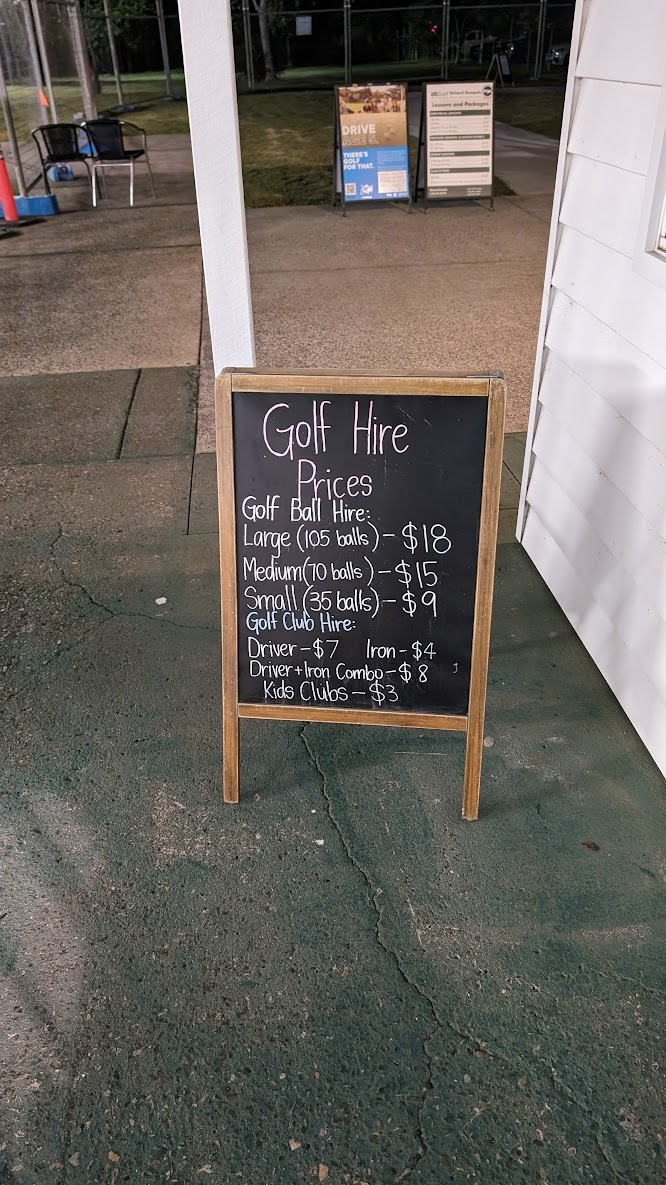 DRIVE
THERE'S
GOLF
FOR THAT.
Lessons and Packages
Golf Hire
Prices
Golf Ball Hire:
Large (105 balls) - $18
Medium (70 balls) - $15
Small (35 balls) - $9
Golf Club Hire:
Driver - $7 Iron - $4
Driver + Iron Combo - $8
Kids Clubs - $3